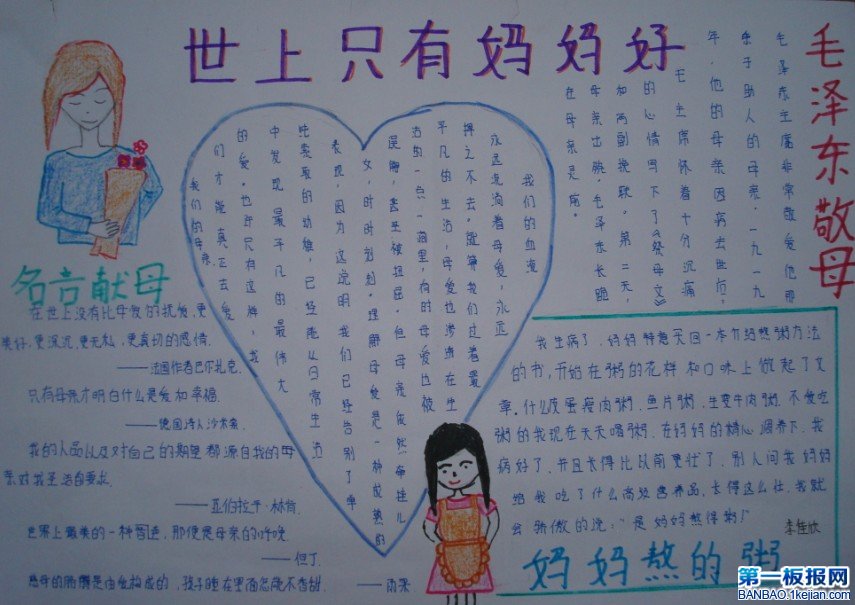 世上只有妈妈好
毛泽东敬母
毛泽东主席非常敬爱他那
乐于助人的母亲。一九一九
年，他的母亲因病去世后，
毛主席怀着十分沉痛
的心情写下了《祭母文》
和两副挽联。第二天，
母亲出殡，毛泽东长跪
在母亲灵
我们的血液
永远流淌着母爱，永远
挥之不去。就算我们过着最
平凡的生活，母爱也渗透在生
活的一点一滴里，有时母爱也被
误解，甚至被扭屈。但母亲依然牵挂儿
女，时时刻刻。理解母爱是一种成熟的
表现，因为这说明我们已经告别了单
纯索取的幼稚，已经能从日常生活
中发现最平凡的最伟大
的爱。也许只有这样，我
们才能真正去爱
我们的母亲。
名言献母
在世上没有比母爱的抚慰，更
美好，更深沉，更无私，更真切的感情。
——法国作者巴尔扎克。
只有母亲才明白什么是爱和幸福。
——德国诗人沙米索。
我的人品以及对自己的期望都源自我的母
亲对我圣洁自要求。
——亚伯拉罕·林肯。
世界上最美的一种声音，那便是母亲的呼唤。
——但丁。
慈母的胳膊是由爱构成的，孩子睡在里面怎能不香甜
——雨果
我生病了，妈妈特意买回一本介绍熬粥方法
的书，开始在粥的花样和口味上做起了文
章。什么皮蛋瘦肉粥、鱼片粥、生雯牛肉粥。不爱吃
粥的我现在天天喝粥，在妈妈的精心调养下，我
病好了，并且长得比以前更壮了，别人问我妈妈
给我吃了什么高级营养品，长得这么壮，我就
会骄傲的说："是妈妈熬得粥！"
李佳欣
妈妈熬的粥
第一板报网
BANBAO.1kejian.com